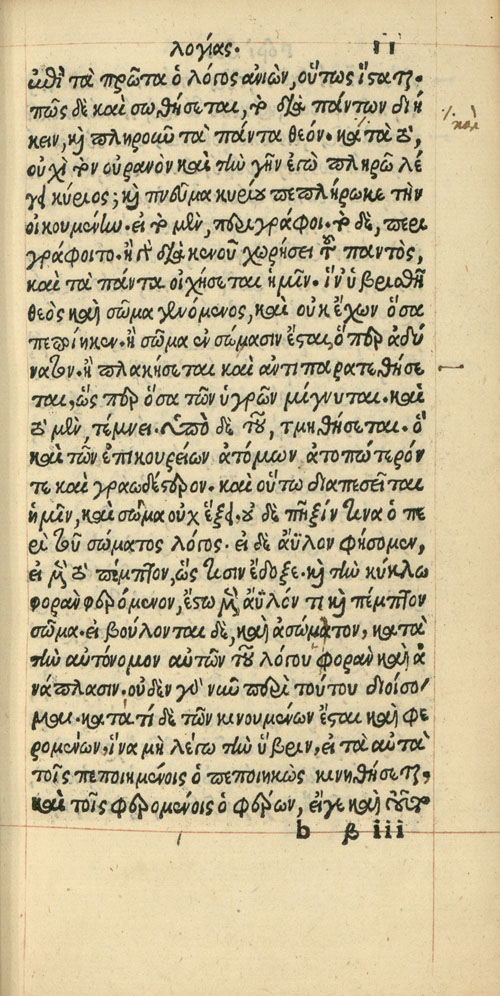 λογίας. 11
ωθὶ τὰ πρῶτα ὁ λόγος ἀνιὼν, οὕτως ἵσαται.
πῶς δὲ καὶ σωθήσεται, τὸ διὰ πάντων διή
κειν, καὶ πληροῦν τὰ πάντα θεόν. κατὰ τὸ,
οὐχὶ τὸν οὐρανὸν καὶ τὴν γῆν ἐγὼ πληρῶ λέ
γει κύριος; καὶ πνεῦμα κυρίου πεπλήρωκε τὴν
οἰκουμένην. εἰ τὸ μὲν, περιγράφοι. τὸ δὲ, περι
γράφοιτο. ἢ γὰρ διὰ κενοῦ χωρήσει τοῦ παντὸς,
καὶ τὰ πάντα οἰχήσεται ἡμῖν. ἵν' ὑβρισθῇ
θεὸς καὶ σῶμα γενόμενος, καὶ οὐκ ἔχων ὅσα
πεποίηκεν. ἢ σῶμα ἐν σώμασιν ἔσται, ὅπερ ἀδύ
νατον. ἢ πλακήσεται καὶ ἀντιπαρατεθήσε
ται, ὥσπερ ὅσα τῶν ὑγρῶν μίγνυται. καὶ
τὸ μὲν, τέμνει. ὑπὸ δὲ τοῦ, τμηθήσεται. ὃ
καὶ τῶν ἐπικουρείων ἀτόμων ἀτοπώτερόν
τε καὶ γραωδέστερον. καὶ οὕτω διαπεσεῖται
ἡμῖν, καὶ σῶμα οὐχ ἕξει. οὐδὲ πῆξίν τινα ὁ πε
ρὶ τοῦ σώματος λόγος. εἰ δὲ ἄϋλον φήσομεν,
εἰ μὲν τὸ πέμπτον, ὥς τισιν ἔδοξε. καὶ τὴν κύκλῳ
φορὰν φερόμενον, ἔστω μὲν ἄϋλόν τι καὶ πέμπτον
σῶμα. εἰ βούλονται δὲ, καὶ ἀσώματον, κατὰ
τὴν αὐτόνομον αὐτῶν τοῦ λόγου φορὰν καὶ ἀ
νάπλασιν. οὐδὲν γὰρ νῦν περὶ τούτου διοίσο/
μαι. κατὰ τί δὲ τῶν κινουμένων ἔσται καὶ φε
ρομένων, ἵνα μὴ λέγω τὴν ὕβριν, εἰ τὰ αὐτὰ
τοῖς πεποιημένοις ὁ πεποιηκὼς κινηθήσεται,
καὶ τοῖς φερομένοις ὁ φέρων, εἴγε καὶ τοῦτο
b β iii